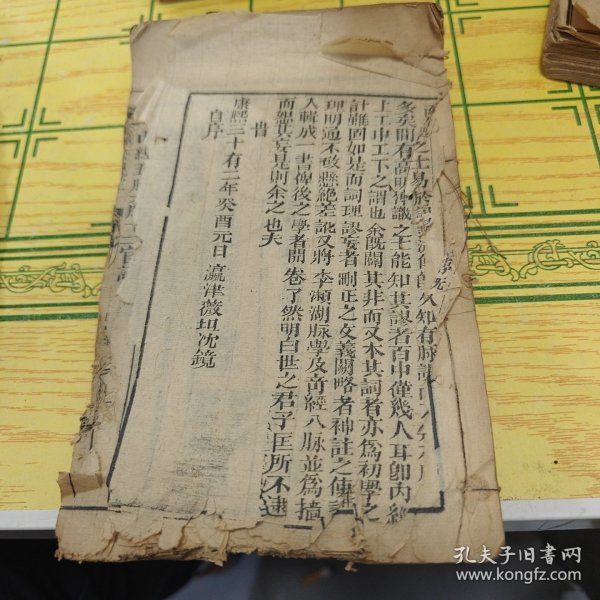 之士易於
多矣間有高明卓識之士能知其謬者百中僅幾人耳卽內經
上工中工下之謂也余旣闢其非而又本其詞者亦爲初學之
計雖固如是而詞理謬妄者刪正之文義闕略者補註之傳
理明通不致懸絶差訛又將李瀕湖脉學及奇經八脉並爲搞
人輯成一書俾後之學者開卷了然明白世之君子匡所不逮
而恕其妄是則余之也夫
旹
康熙三十有二年癸酉元日瀛津薇垣沈鏡
自序
孔夫子旧书网
www.kongfz.com